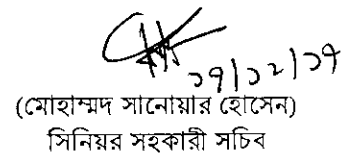 ১৭/১২/১৭
(মোহাম্মদ সানোয়ার হোসেন)
সিনিয়র সহকারী সচিব